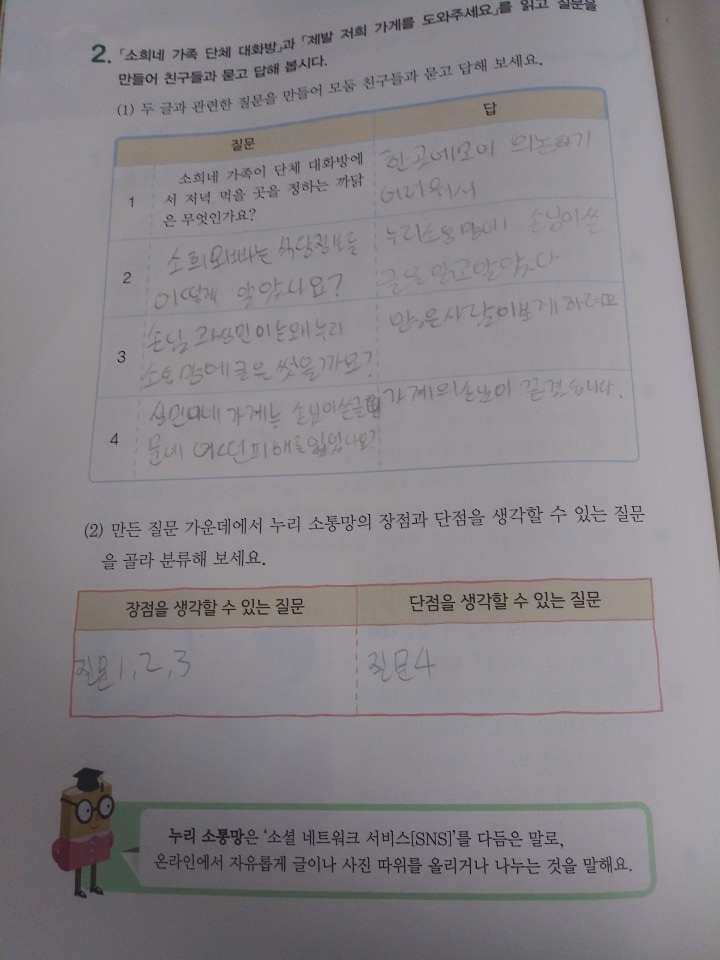 2. 「소희네 가족 단체 대화방」과 「제발 저희 가게를 도와주세요」를 읽고 질문을
만들어 친구들과 묻고 답해 봅시다.
(1) 두 글과 관련한 질문을 만들어 모둠 친구들과 묻고 답해 보세요.
질문
답
1
소희네 가족이 단체 대화방에
서 저녁 먹을 곳을 정하는 까닭
은 무엇인가요?
한 곳에모이 의논하기
어려워서
2
소희 오빠는 식당정보를
어떻게 알았나요?
누리소통망에 손님이 쓴
글을 읽고 알았다
3
손님 이는 왜 누리
소통망에 글을 썻을까요?
많은 사람이 보게 하려고
4
네 가게는 손님이 쓴글 때
문에 어떤피해를 입었나요?
가게의 손님이 끈겼습니다.
(2) 만든 질문 가운데에서 누리 소통망의 장점과 단점을 생각할 수 있는 질문
을 골라 분류해 보세요.
장점을 생각할 수 있는 질문
단점을 생각할 수 있는 질문
질문1, 2, 3
질문4
누리 소통망은 '소셜 네트워크 서비스[SNS]'를 다듬은 말로,
온라인에서 자유롭게 글이나 사진 따위를 올리거나 나누는 것을 말해요.